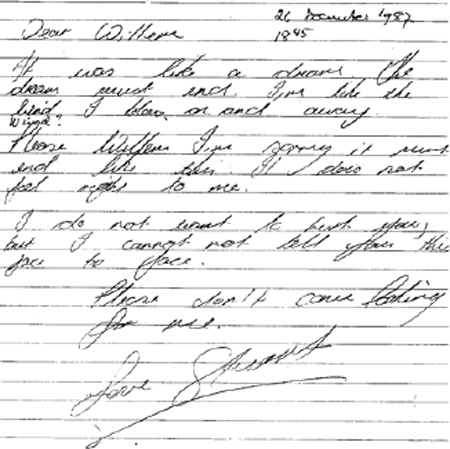 26 December 1987
1845
Dear Willem
It was like a dream. The
dream must end. I'm like the
wind. I blow on and away
Wind?
Please Willem I'm sorry it must
end like this. It does not
feel right to me.
I do not want to hurt you,
but I cannot not tell you this
face to face.
Please don't come looking
for me.
Love